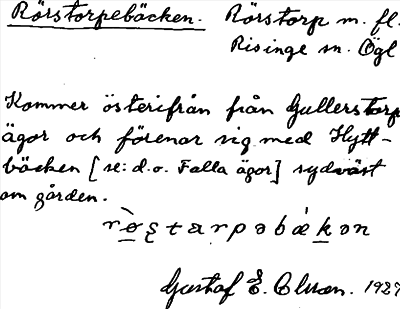 Rörstorpebäcken. Rörstorp m. fl.
Risinge sn. Ögl
Kommer österifrån från Gullerstorp
ägor och förenar sig med Hytt-
bäcken [se: d.o. Falla ägor] sydväst
om gården.
Gustaf E. 1929